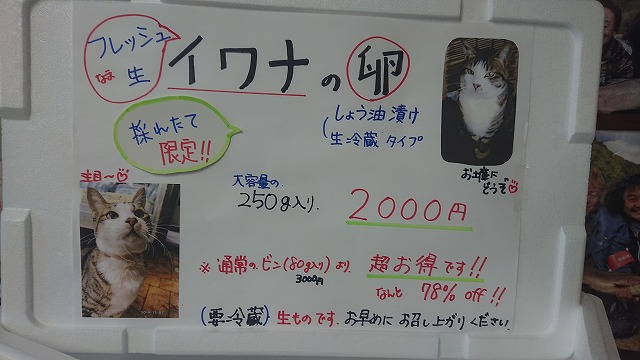 フレッシュ
なま
生
イワナの卵
しょう油漬け
生冷蔵タイプ
採れたて
限定!!
お土産に
どうぞ
注目〜
大容量の
250g入り.
2000円
※通常のビン(80g入り)より
3000円
超お得です!!
なんと 78% off!!
(要冷蔵)生ものです.お早めにお召し上がりください.